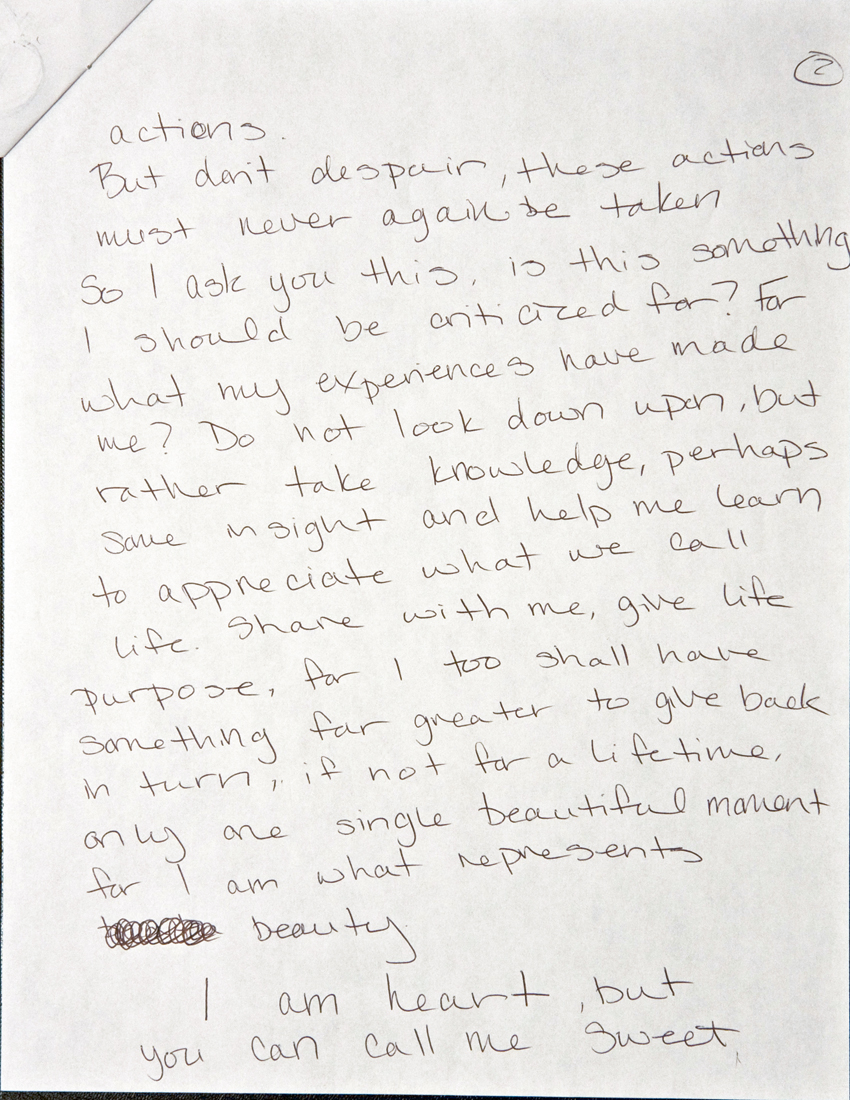 2
actions.
But don't despair, these actions
must never again be taken
So I ask you this, is this something
I should be criticized for? For
what my experiences have made
me? Do not look down upon, but
rather take knowledge, perhaps
some insight and help me learn
to appreciate what we call
life. Share with me, give life
purpose, for I too shall have
something far greater to give back
in turn, if not for a lifetime,
only one single beautiful moment
for I am what represents
beauty.
I am heart, but
you can call me sweet